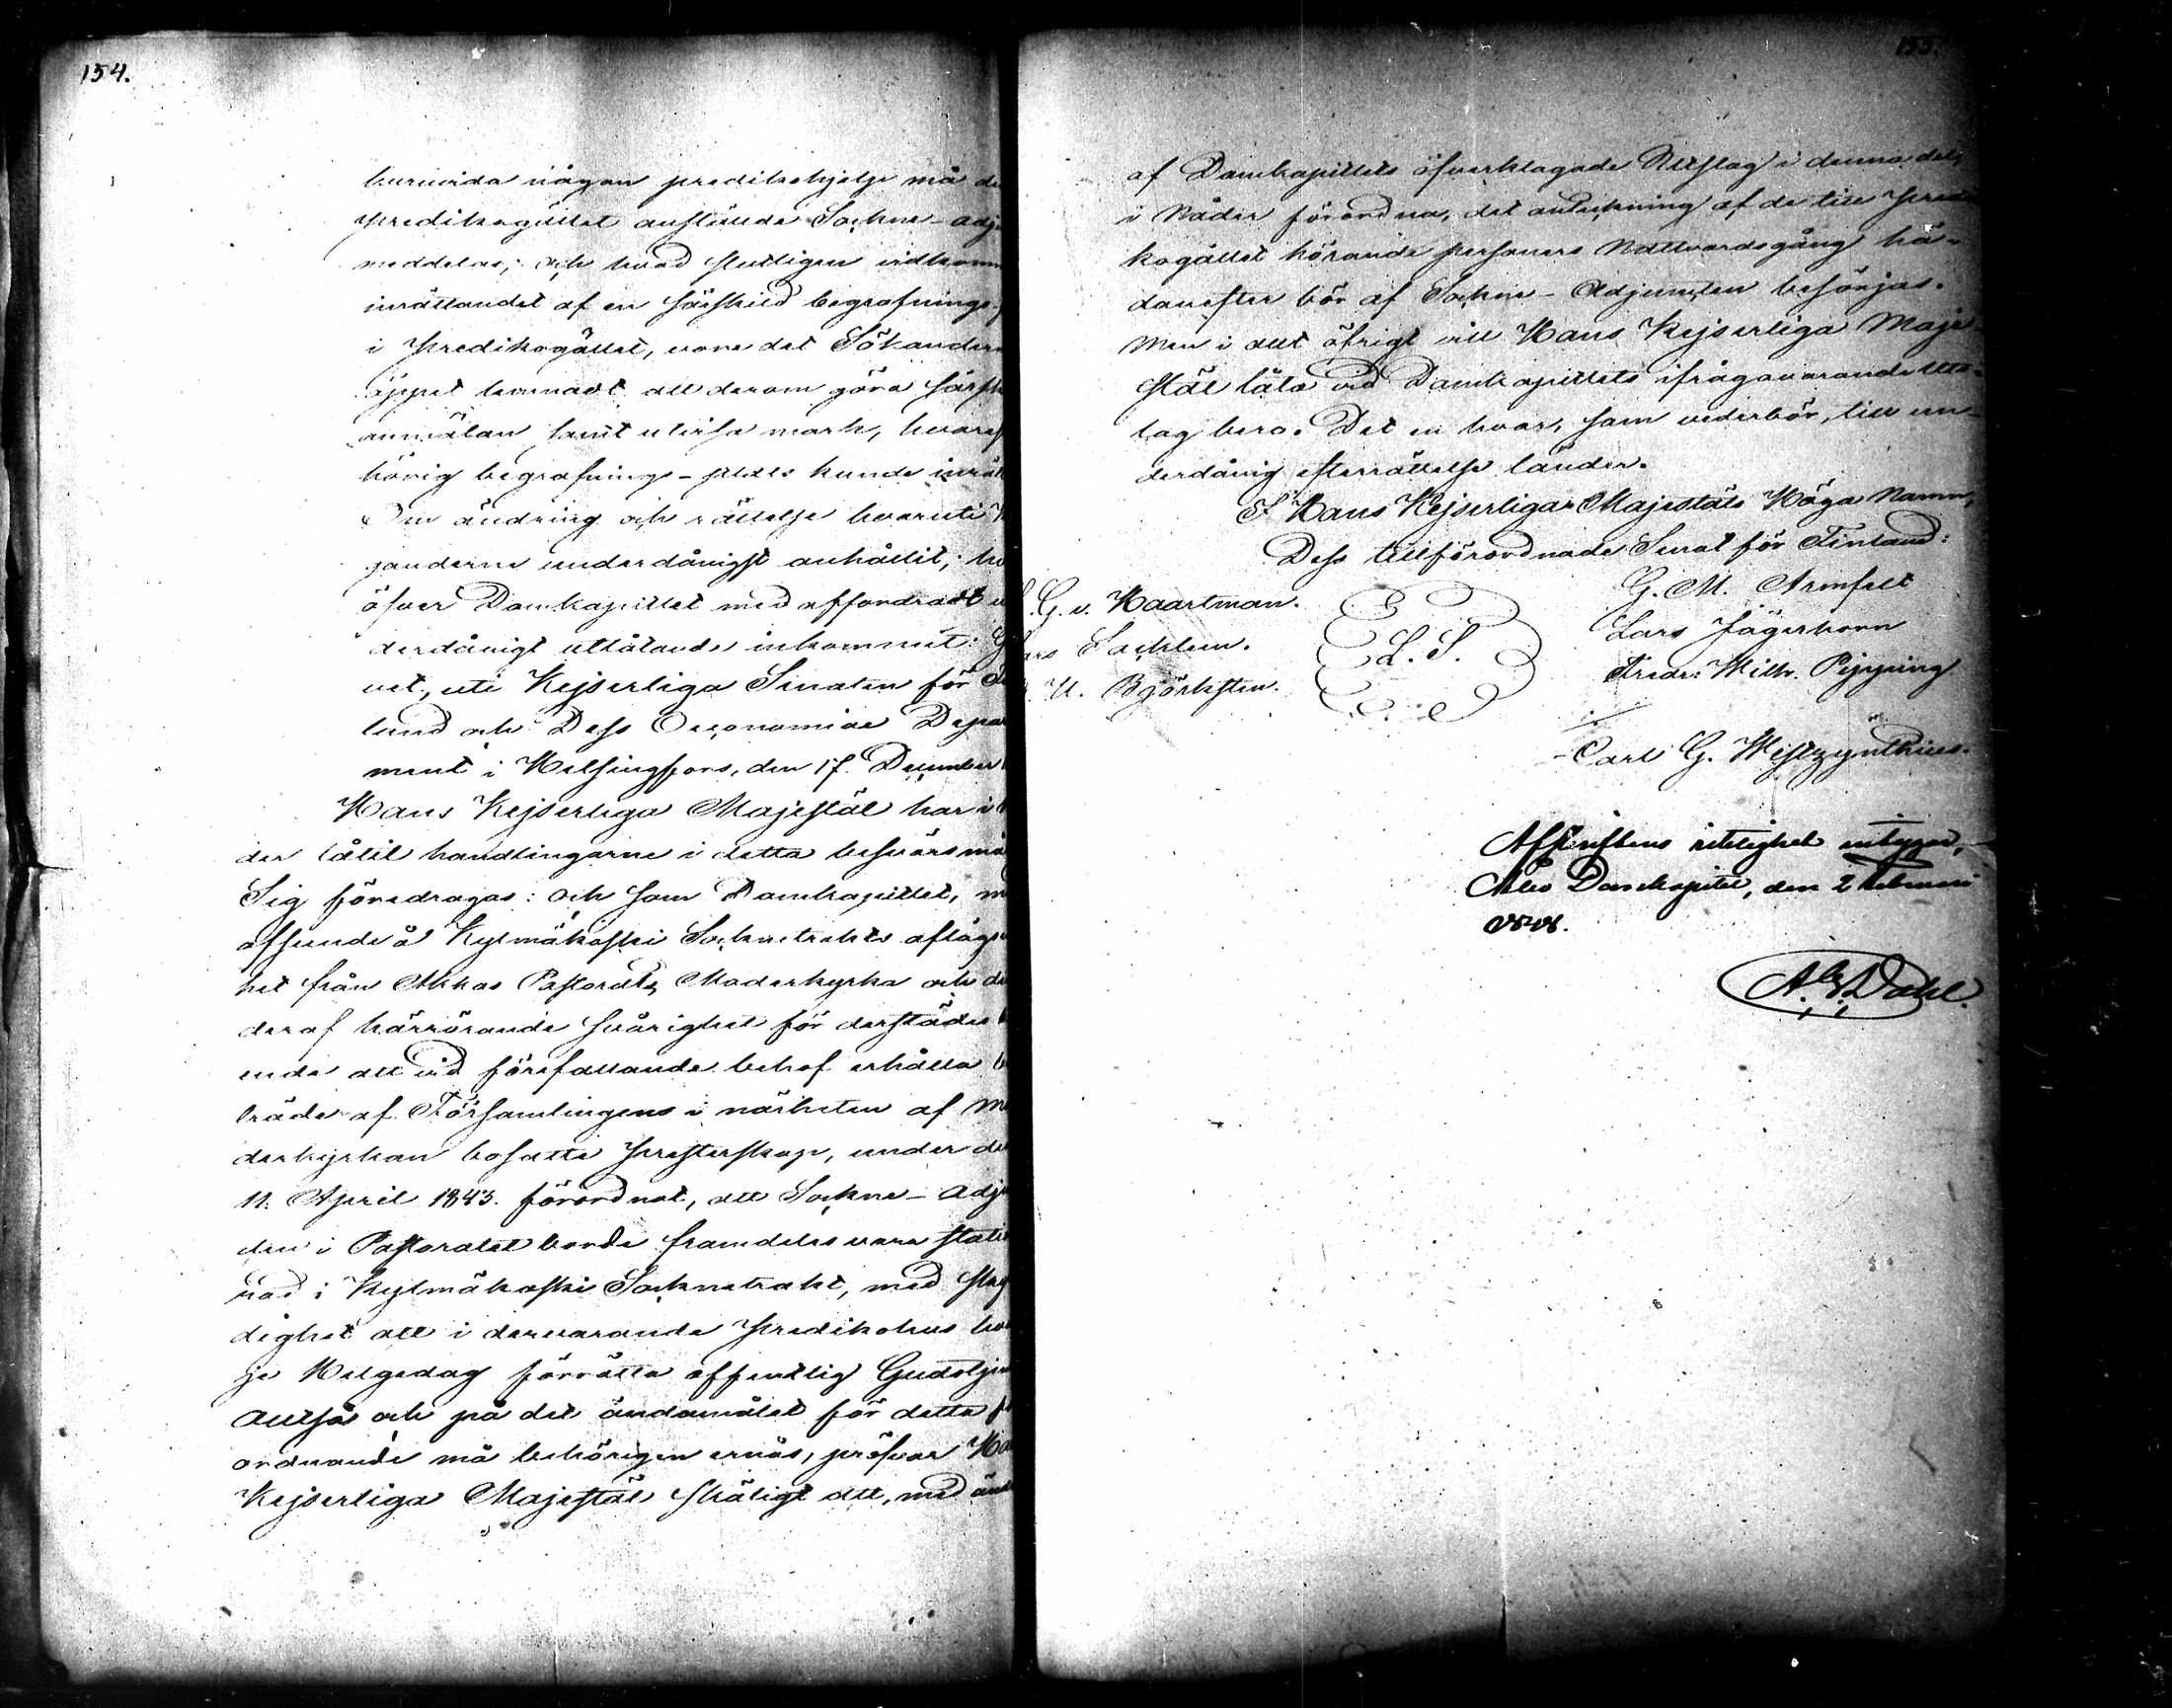 154.
huruvida någon predikohjelp må de
predikogället anstånde Sockne-adj
meddelas; och hvad slutligen vidkomm
inrättandet af en särskild begrafnings-
i Predikogället, vore det Sökandern
öppet lemnadt att derom göra särsk
anmälan samt utvisa mark, hvaref
hörig begrafnings-plats kunde inrät
Om ändring och rättelse hvaruti
ganderne underdånigst anhållit; hv
öfver Domkapitlet med affordradt u
derdånigt utlåtande inkommit: G
vet, uti Kejserliga Senaten för Fi
land och Dess Oeconomiae Depar
ment i Helsingfors, den 17. December
Hans Kejserliga Majestät har i
der låtit handlingarne i detta besvärsmå
Sig föredragas: och som Domkapitlet, m
afseende å Kylmäkoski Socknetrakts aflägs
het från Akkas Pastorats Moderkyrka och de
deraf härrörande svårighet för derstädes
ende att vid förefallande behof erhålla b
träde af Församlingens i närheten af Mo
derkyrkan bosatte Presterskap, under de
11. April 1843. förordnat, att Sockne-Adj
den i Pastoratet borde framdeles vara statio
nad i Kylmäkoski Socknetrakt, med skyl
dighet att i dervarande Predikohus hva
je Helgedag förrätta offentlig Gudstjen
Alltså och på det ändamålet för detta f
ordnande må behörigen ernås, pröfvar Ha
Kejserliga Majestät skäligt att, med änd
155.
af Domkapitlets öfverklagade Utslag i denna del,
i Nåder förordna, det anteckning af de till Predi
kogället hörande personers Nattvardsgång hä-
danefter bör af Sockne-Adjuncten besörjas.
Men i allt öfrigt vill Hans Kejserliga Maje-
stät låta vid Domkapitlets ifrågavarande Uts-
lag bero. Det en hvar, som vederbör, till un-
derdånig efterrättelse länder.
I Hans Kejserliga Majestäts Höga Namn,
Dess tillförordnade Senat för Finland:
G. v. Haartman. G. M. Armfelt
Lars Sacklen. L. S. Lars Jägerhorn
U. Björksten. Fredr: Wilh. Pipping
Carl G. Westzynthius.
Afskriftens riktighet intygar,
Åbo Domkapitel, den 2 Februari
A. G. Dahl.